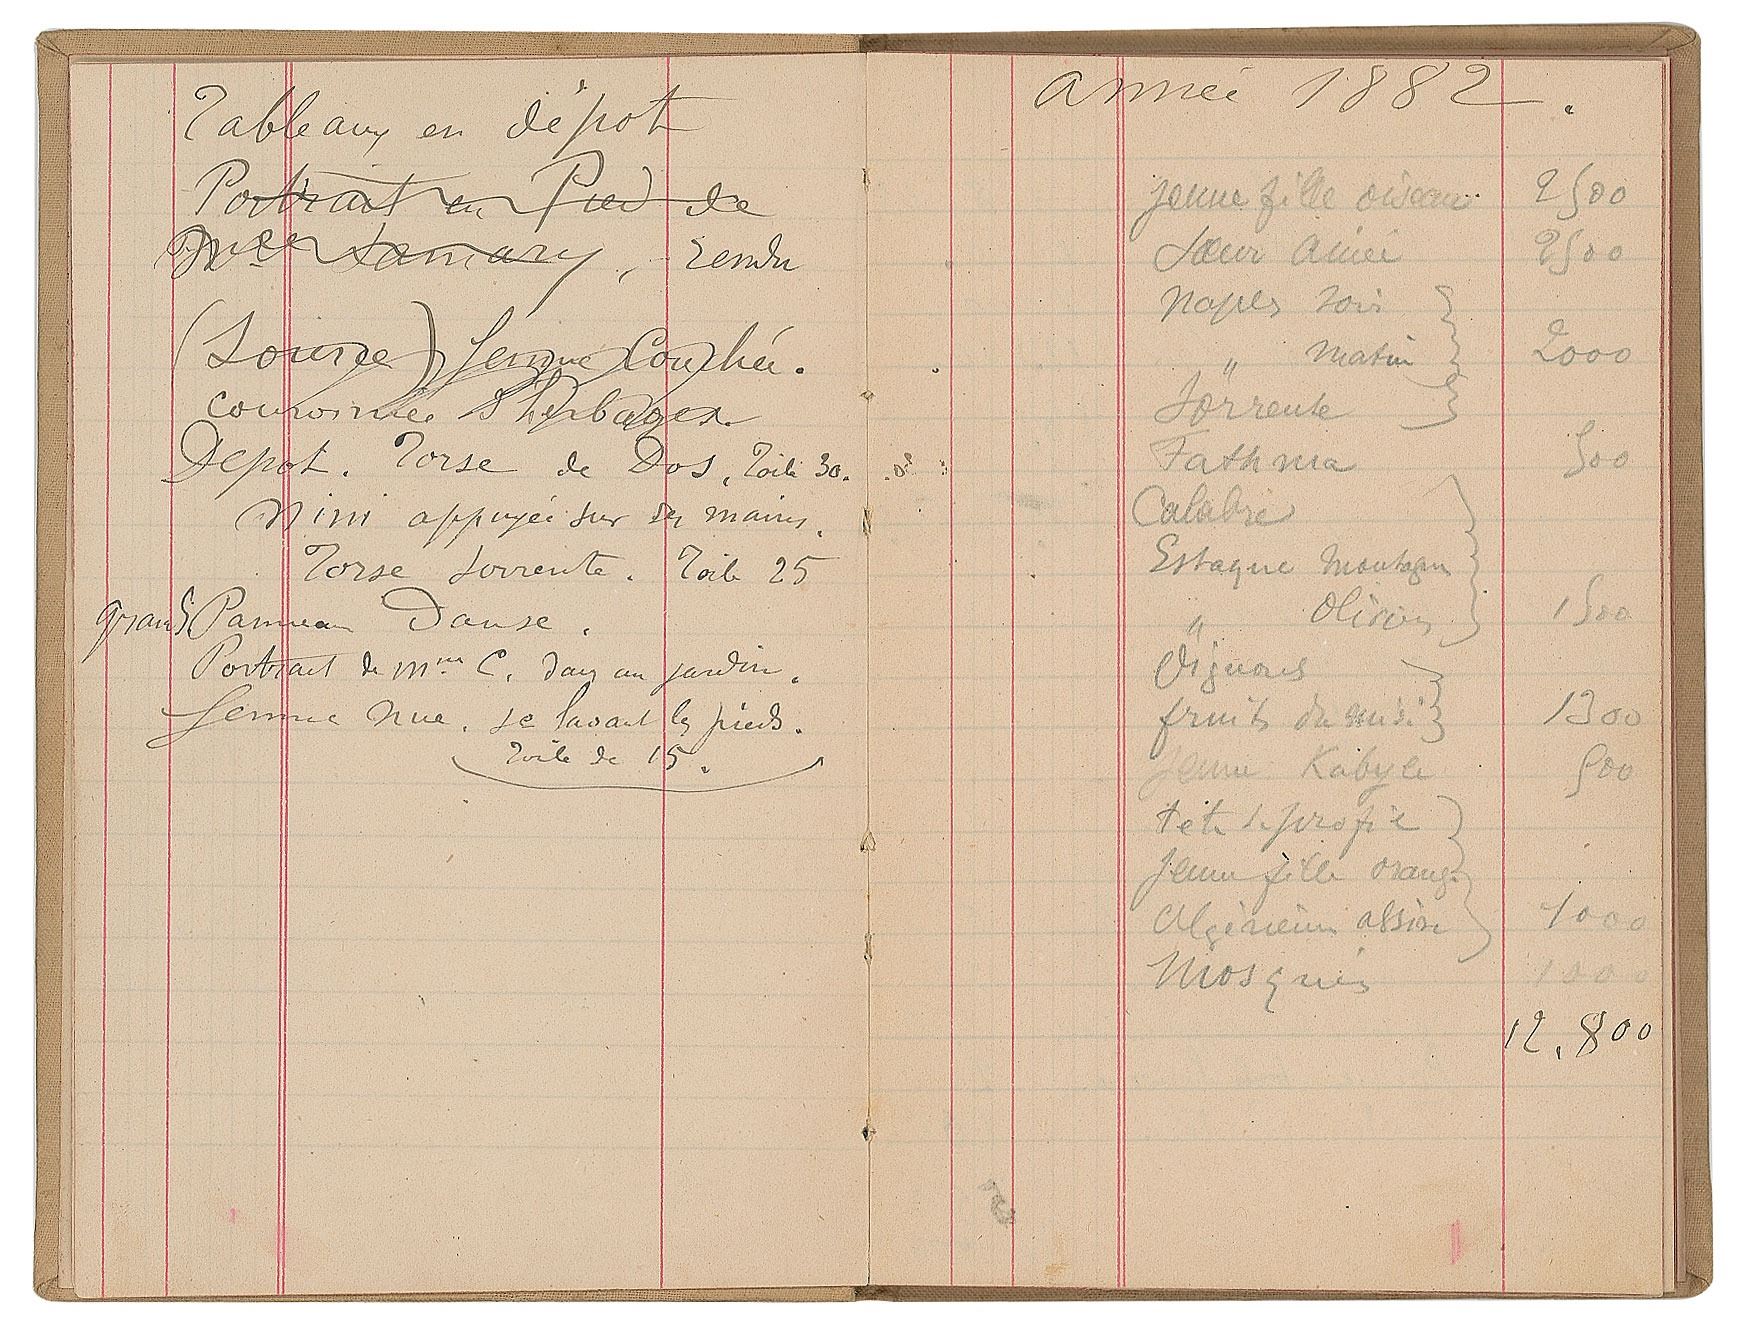 Tableaux en dépot
Portrait en Pied de
Mlle Samary, rendu
(Source) femme Couchée.
couronnée d'herbages.
Depot. Torse de Dos, Toile 30.
Nini appuyée sur ses mains.
Torse Sorrente. Toile 25
grand Panneau Danse.
Portrait de Mme C. dans un jardin.
femme nue. se lavant les pieds.
Toile de 15.
année 1882.
jeune fille oiseau 2500
Sœur Ainée 2500
Naples soir
" matin 2000
Sorrente
Fathma 500
Calabre
Estaque Montagn
" Oliviers 1500
Oignons
fruits du midi 1300
Jeune Kabyle 500
tête de profil
Jeune fille orange
Algérienne assise 1000
Mosquée 1000
12.800